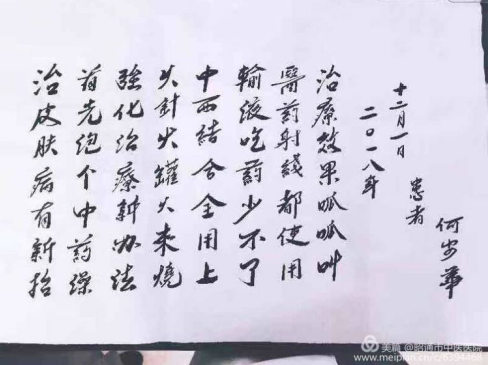 治皮肤病有新招
首先泡个中药澡
強化治療新办法
火針火罐火来燒
中西結合全用上
輸液吃药少不了
醫药射线都使用
治療效果呱呱叫
二〇一八年
十二月一日
患者
何 華
美篇 @昭通市中医医院